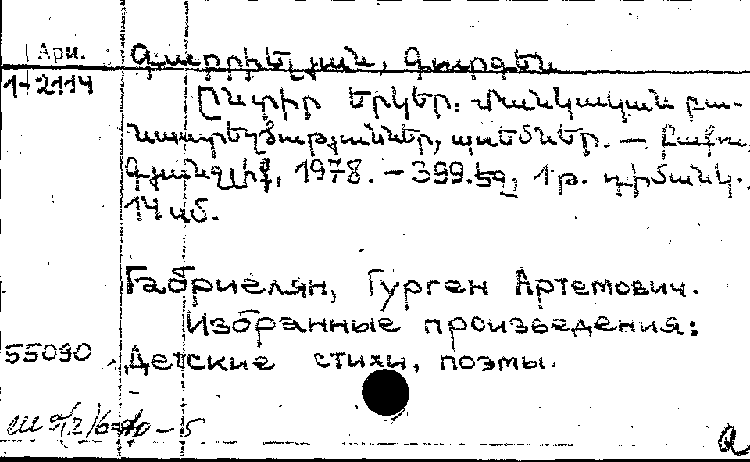 Арм. Գաբրիելյան, Գուրգեն
1-2114
Ընտիր երկեր: Մանկական բա-
նաստեղծություններ, պոեմներ. — Բաքու,
Գյանջլիք, 1978. — 399.էջ, 1 թ. դիմանկ.
14 սմ.
Габриелян, Гурген Артемович.
Избранные произведения:
55090 Детские стихи, поэмы.